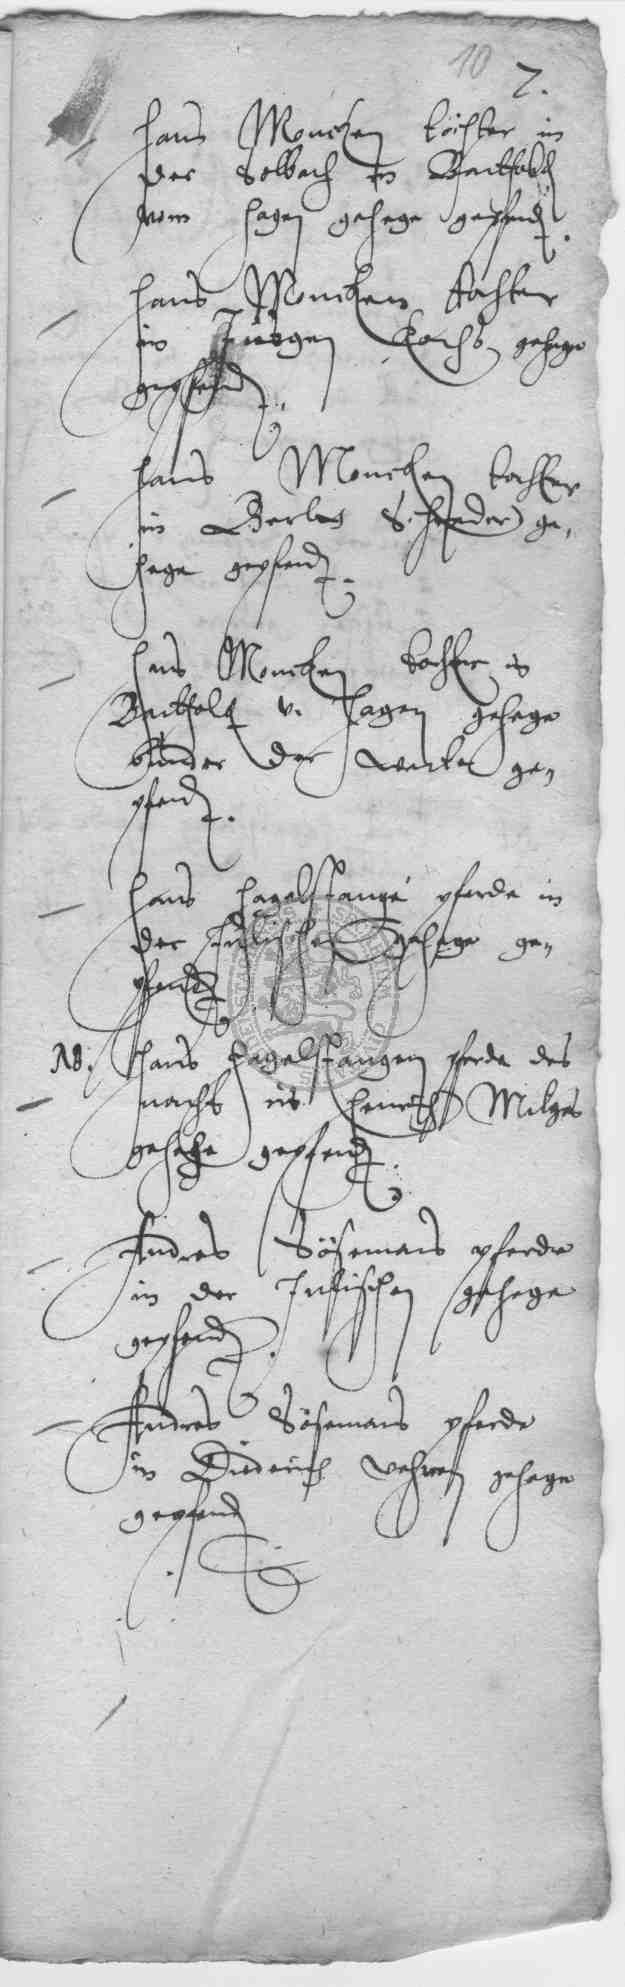 10
7.
Hans Moncken tochter in
der Solbach in Bartholdt
vom Hagen gehege gepfendt.
Hans Moncken tochter
in Jürgen Kochs gehege
gepfendt
Hans Moncken tochter
in Berldt Schrader ge„
hege gepfendt.
Hans Moncken tochter in
Barthold v. Hagen gehege
hinder der ge„
pfendt.
Hans Hagelstange pferde in
der gehege ge„
pfendt
NB. Hans Hagelstangen pferde des
nachts in Henrich Milges
gehege gepfendt.
Andres Sösemans pferde
in der gehege
gepfendt.
Andres Sösemans pferde
in Diderich gehege
gepfendt